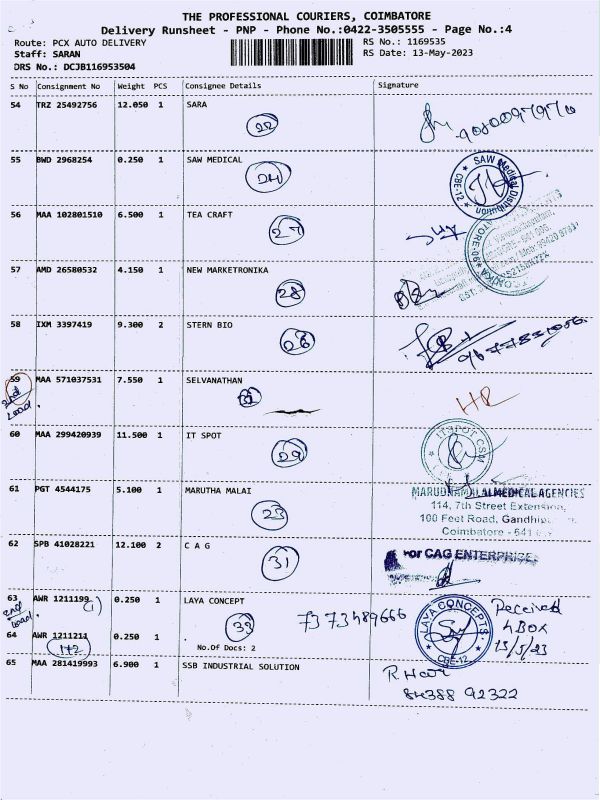 THE PROFESSIONAL COURIERS, COIMBATORE
Delivery Runsheet - PNP - Phone No.:0422-3505555 - Page No.:4
Route: PCX AUTO DELIVERY
RS No.: 1169535
Staff: SARAN
RS Date: 13-May-2023
DRS No.: DCJB116953504
S No Consignment No Weight PCS Consignee Details Signature
54 TRZ 25492756 12.050 1 SARA
22
55 BWD 2968254 0.250 1 SAW MEDICAL
24
SAW Medical Distribution
CBE-12
56 MAA 102801510 6.500 1 TEA CRAFT
27
57 AMD 26580532 4.150 1 NEW MARKETRONIKA
28
58 IXM 3397419 9.300 2 STERN BIO
26
59 MAA 571037531 7.550 1 SELVANATHAN
2nd Load
60 MAA 299420939 11.500 1 IT SPOT
29
61 PGT 4544175 5.100 1 MARUTHA MALAI
23
MARUDHAMALAI MEDICAL AGENCIES
114, 7th Street Extension,
100 Feet Road,
Coimbatore - 641
62 SPB 41028221 12.100 2 C A G
31
For CAG ENTERPRISE
63 AWR 1211199 0.250 1 LAYA CONCEPT
(1)
2nd Load
33
7373489666
LAYA CONCEPTS
CBE-12
Received
4 BOX
13/5/23
64 AWR 1211211 0.250 1
1+2
No.Of Docs: 2
65 MAA 281419993 6.900 1 SSB INDUSTRIAL SOLUTION
84388 92322